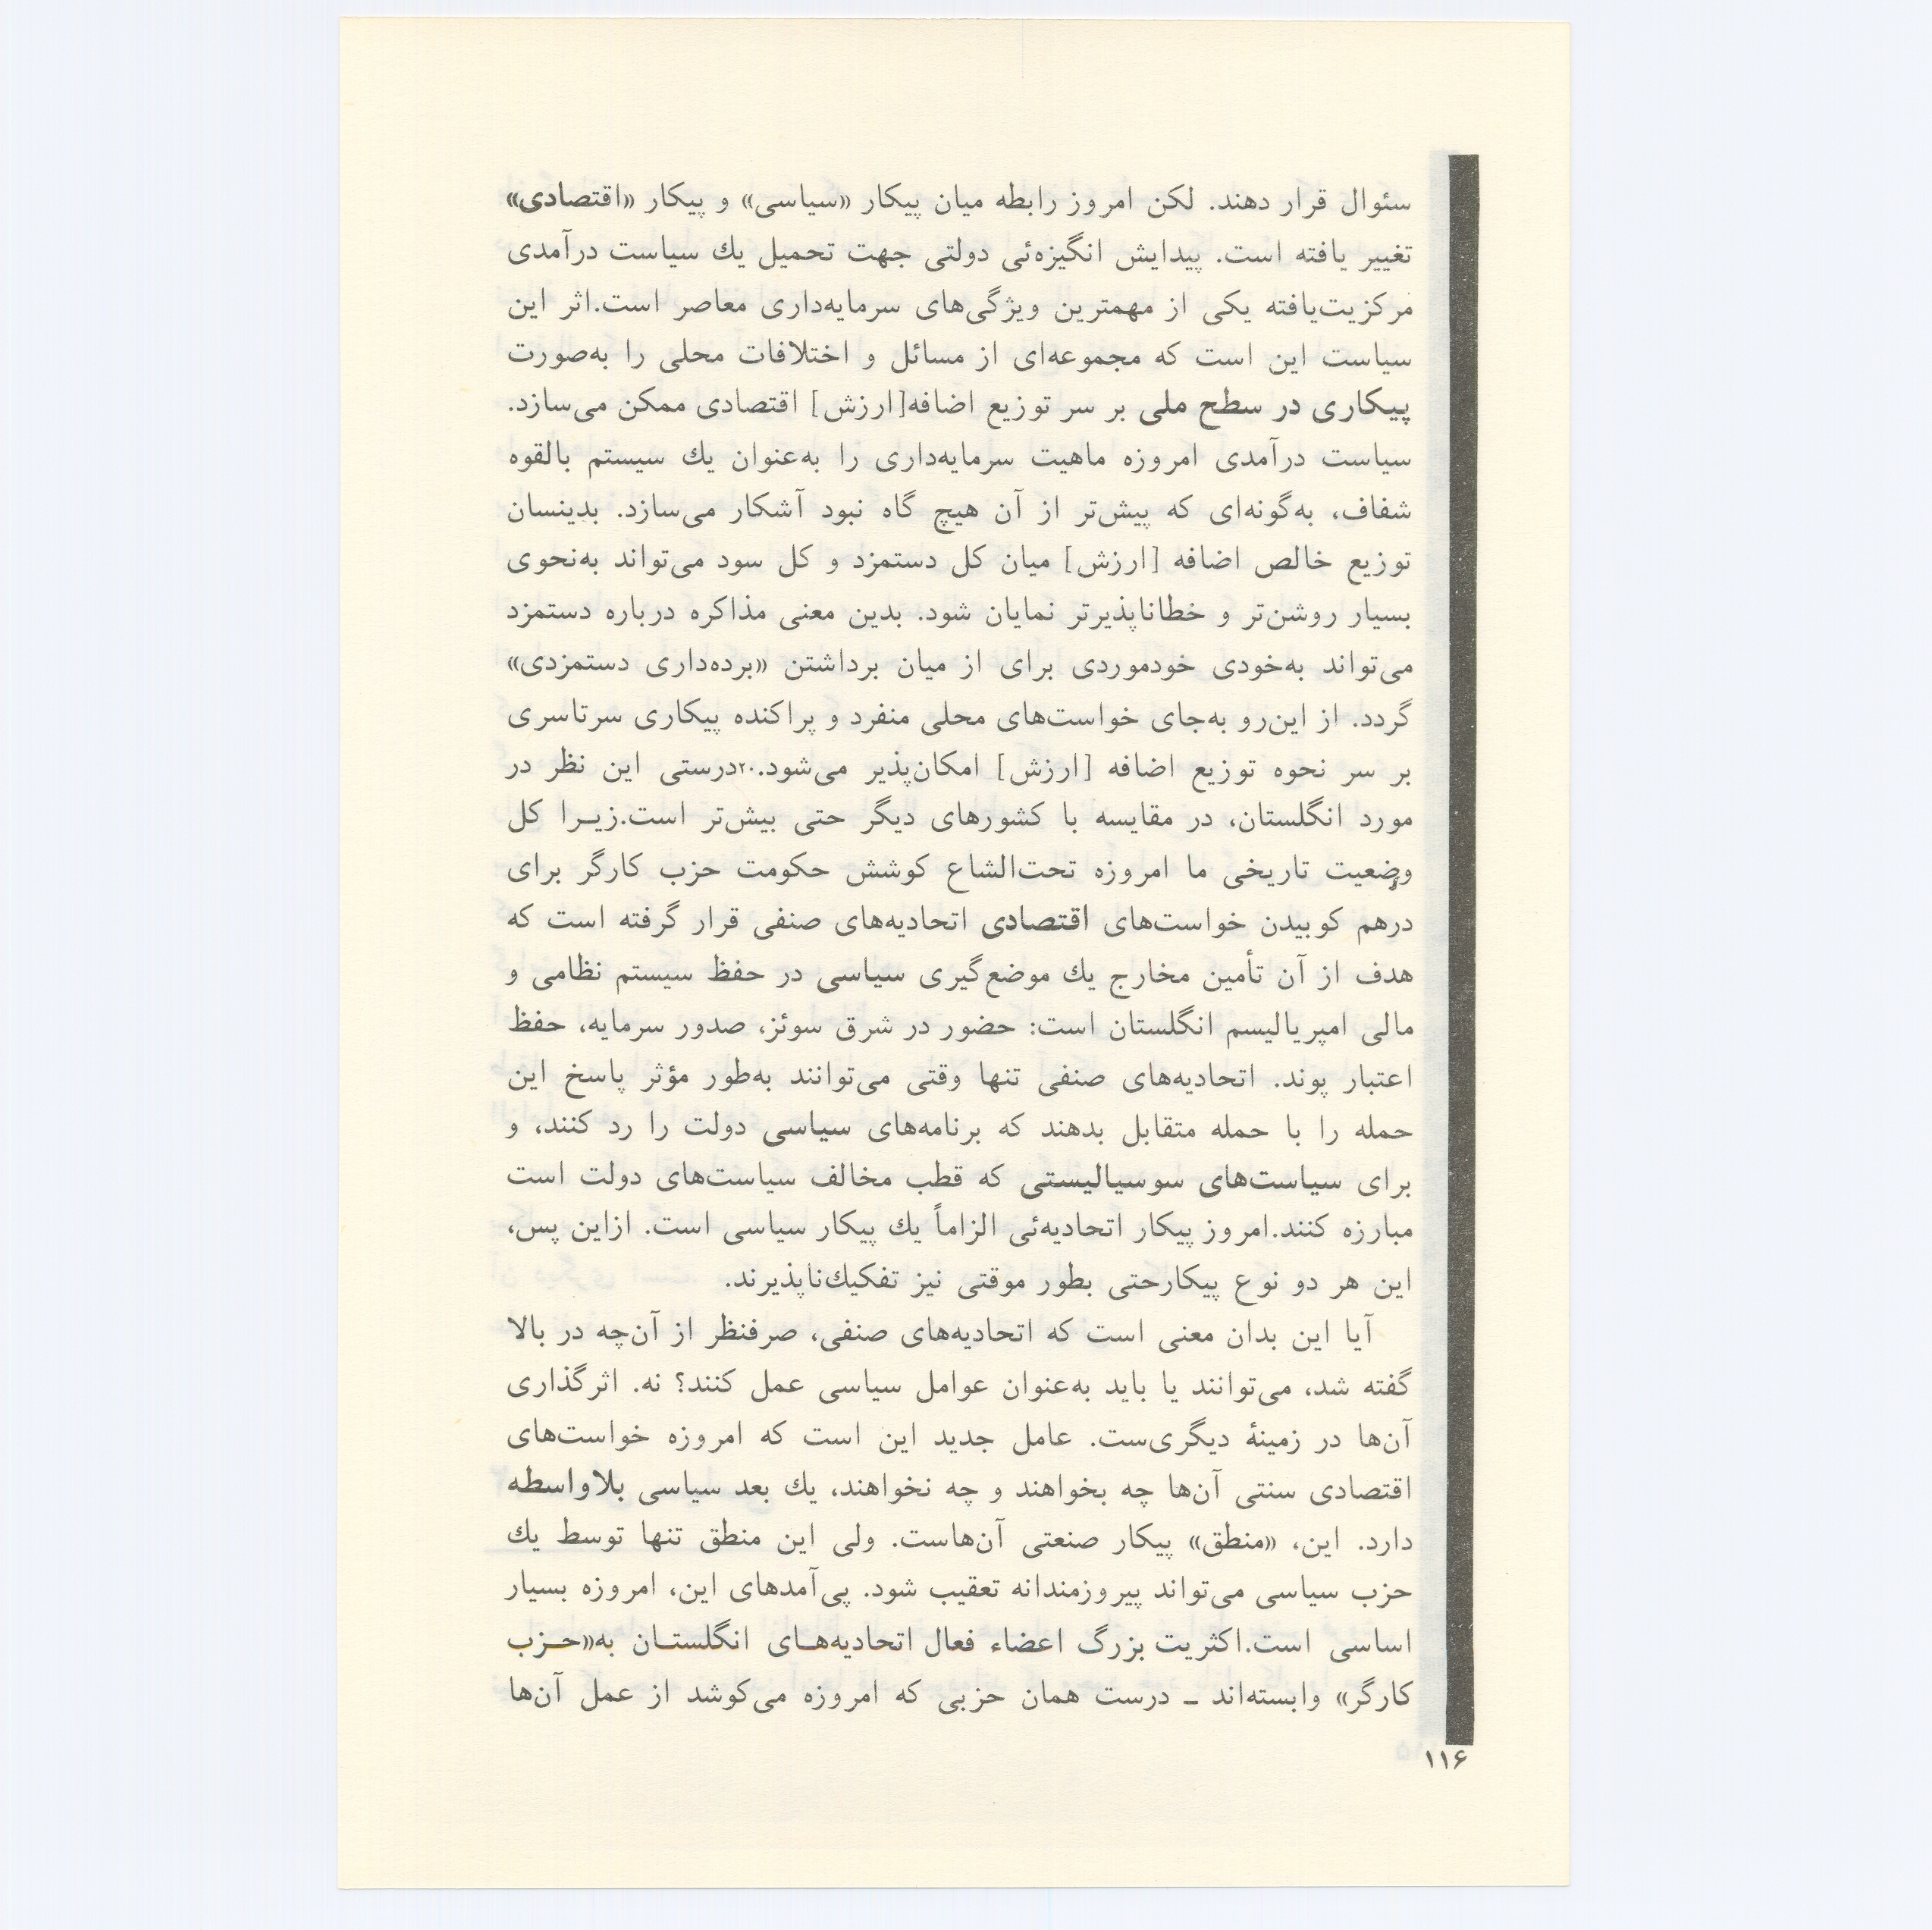 سئوال قرار دهند. لکن امروز رابطه میان پیکار «سیاسی» و پیکار «اقتصادی»
تغییر یافته است. پیدایش انگیزه‌ئی دولتی جهت تحمیل یك سیاست درآمدی
مرکزیت‌یافته یکی از مهمترین ویژگی‌های سرمایه‌داری معاصر است.اثر این
سیاست این است که مجموعه‌ای از مسائل و اختلافات محلی را به‌صورت
پیکاری در سطح ملی بر سر توزیع اضافه[ارزش] اقتصادی ممکن می‌سازد.
سیاست درآمدی امروزه ماهیت سرمایه‌داری را به‌عنوان یك سیستم بالقوه
شفاف، به‌گونه‌ای که پیش‌تر از آن هیچ گاه نبود آشکار می‌سازد. بدینسان
توزیع خالص اضافه [ارزش] میان کل دستمزد و کل سود می‌تواند به‌نحوی
بسیار روشن‌تر و خطاناپذیرتر نمایان شود. بدین معنی مذاکره درباره دستمزد
می‌تواند به‌خودی خودموردی برای از میان برداشتن «برده‌داری دستمزدی»
گردد. از این‌رو به‌جای خواست‌های محلی منفرد و پراکنده پیکاری سرتاسری
بر سر نحوه توزیع اضافه [ارزش] امکان‌پذیر می‌شود.۲۰درستی این نظر در
مورد انگلستان، در مقایسه با کشورهای دیگر حتی بیش‌تر است.زیـرا کل
وضعیت تاریخی ما امروزه تحت‌الشاع کوشش حکومت حزب کارگر برای
درهم کوبیدن خواست‌های اقتصادی اتحادیه‌های صنفی قرار گرفته است که
هدف از آن تأمین مخارج یك موضع‌گیری سیاسی در حفظ سیستم نظامی و
مالی امپریالیسم انگلستان است: حضور در شرق سوئز، صدور سرمایه، حفظ
اعتبار پوند. اتحادیه‌های صنفی تنها وقتی می‌توانند به‌طور مؤثر پاسخ این
حمله را با حمله متقابل بدهند که برنامه‌های سیاسی دولت را رد کنند، و
برای سیاست‌های سوسیالیستی که قطب مخالف سیاست‌های دولت است
مبارزه کنند.امروز پیکار اتحادیه‌ئی الزاماً یك پیکار سیاسی است. ازاین پس،
این هر دو نوع پیکارحتی بطور موقتی نیز تفکیك‌ناپذیرند.
آیا این بدان معنی است که اتحادیه‌های صنفی، صرفنظر از آن‌چه در بالا
گفته شد، می‌توانند یا باید به‌عنوان عوامل سیاسی عمل کنند؟ نه. اثرگذاری
آن‌ها در زمینهٔ دیگری‌ست. عامل جدید این است که امروزه خواست‌های
اقتصادی سنتی آن‌ها چه بخواهند و چه نخواهند، یك بعد سیاسی بلاواسطه
دارد. این، «منطق» پیکار صنعتی آن‌هاست. ولی این منطق تنها توسط یك
حزب سیاسی می‌تواند پیروزمندانه تعقیب شود. پی‌آمدهای این، امروزه بسیار
اساسی است.اکثریت بزرگ اعضاء فعال اتحادیه‌هـای انگلستـان به«حـزب
کارگر» وابسته‌اند ـ درست همان حزبی که امروزه می‌کوشد از عمل آن‌ها
۱۱۶